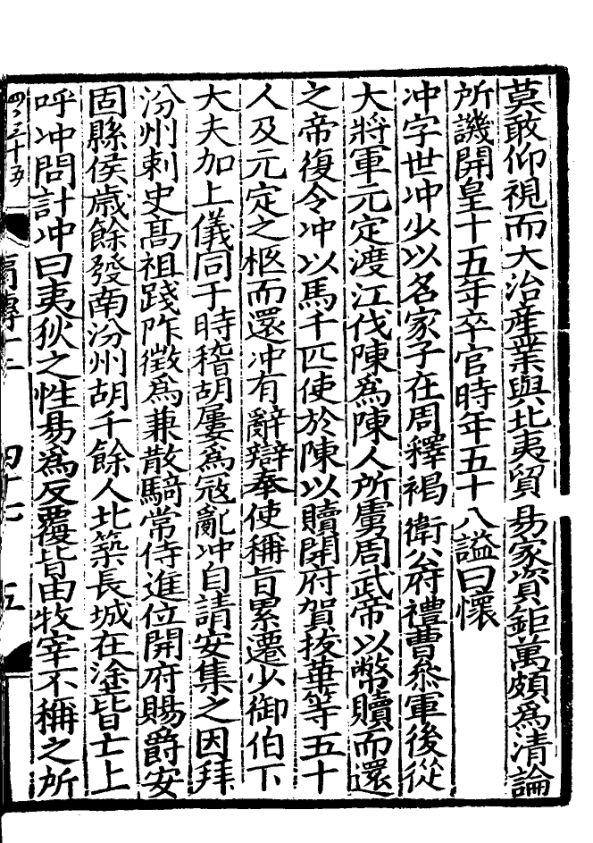 莫敢仰視而大治産業與北夷貿易家資鉅萬頗爲清論
所譏開皇十五年卒官時年五十八謚曰懷
冲字世冲少以名家子在周釋褐衛公府禮曹叅軍後從
大將軍元定渡江伐陳爲陳人所虜周武帝以幣贖而還
之帝復令冲以馬千匹使於陳以贖開府賀拔華等五十
人及元定之柩而還冲有辭辯奉使稱旨累遷少御伯下
大夫加上儀同于時稽胡屢爲冦亂冲自請安集之因拜
汾州刺史髙祖踐阼徵爲兼散騎常侍進位開府賜爵安
固縣侯歳餘發南汾州胡千餘人北築長城在塗皆亡上
呼冲問計冲曰夷狄之性易爲反覆皆由牧宰不稱之所
四百三十五
列傳十二
四十七
五